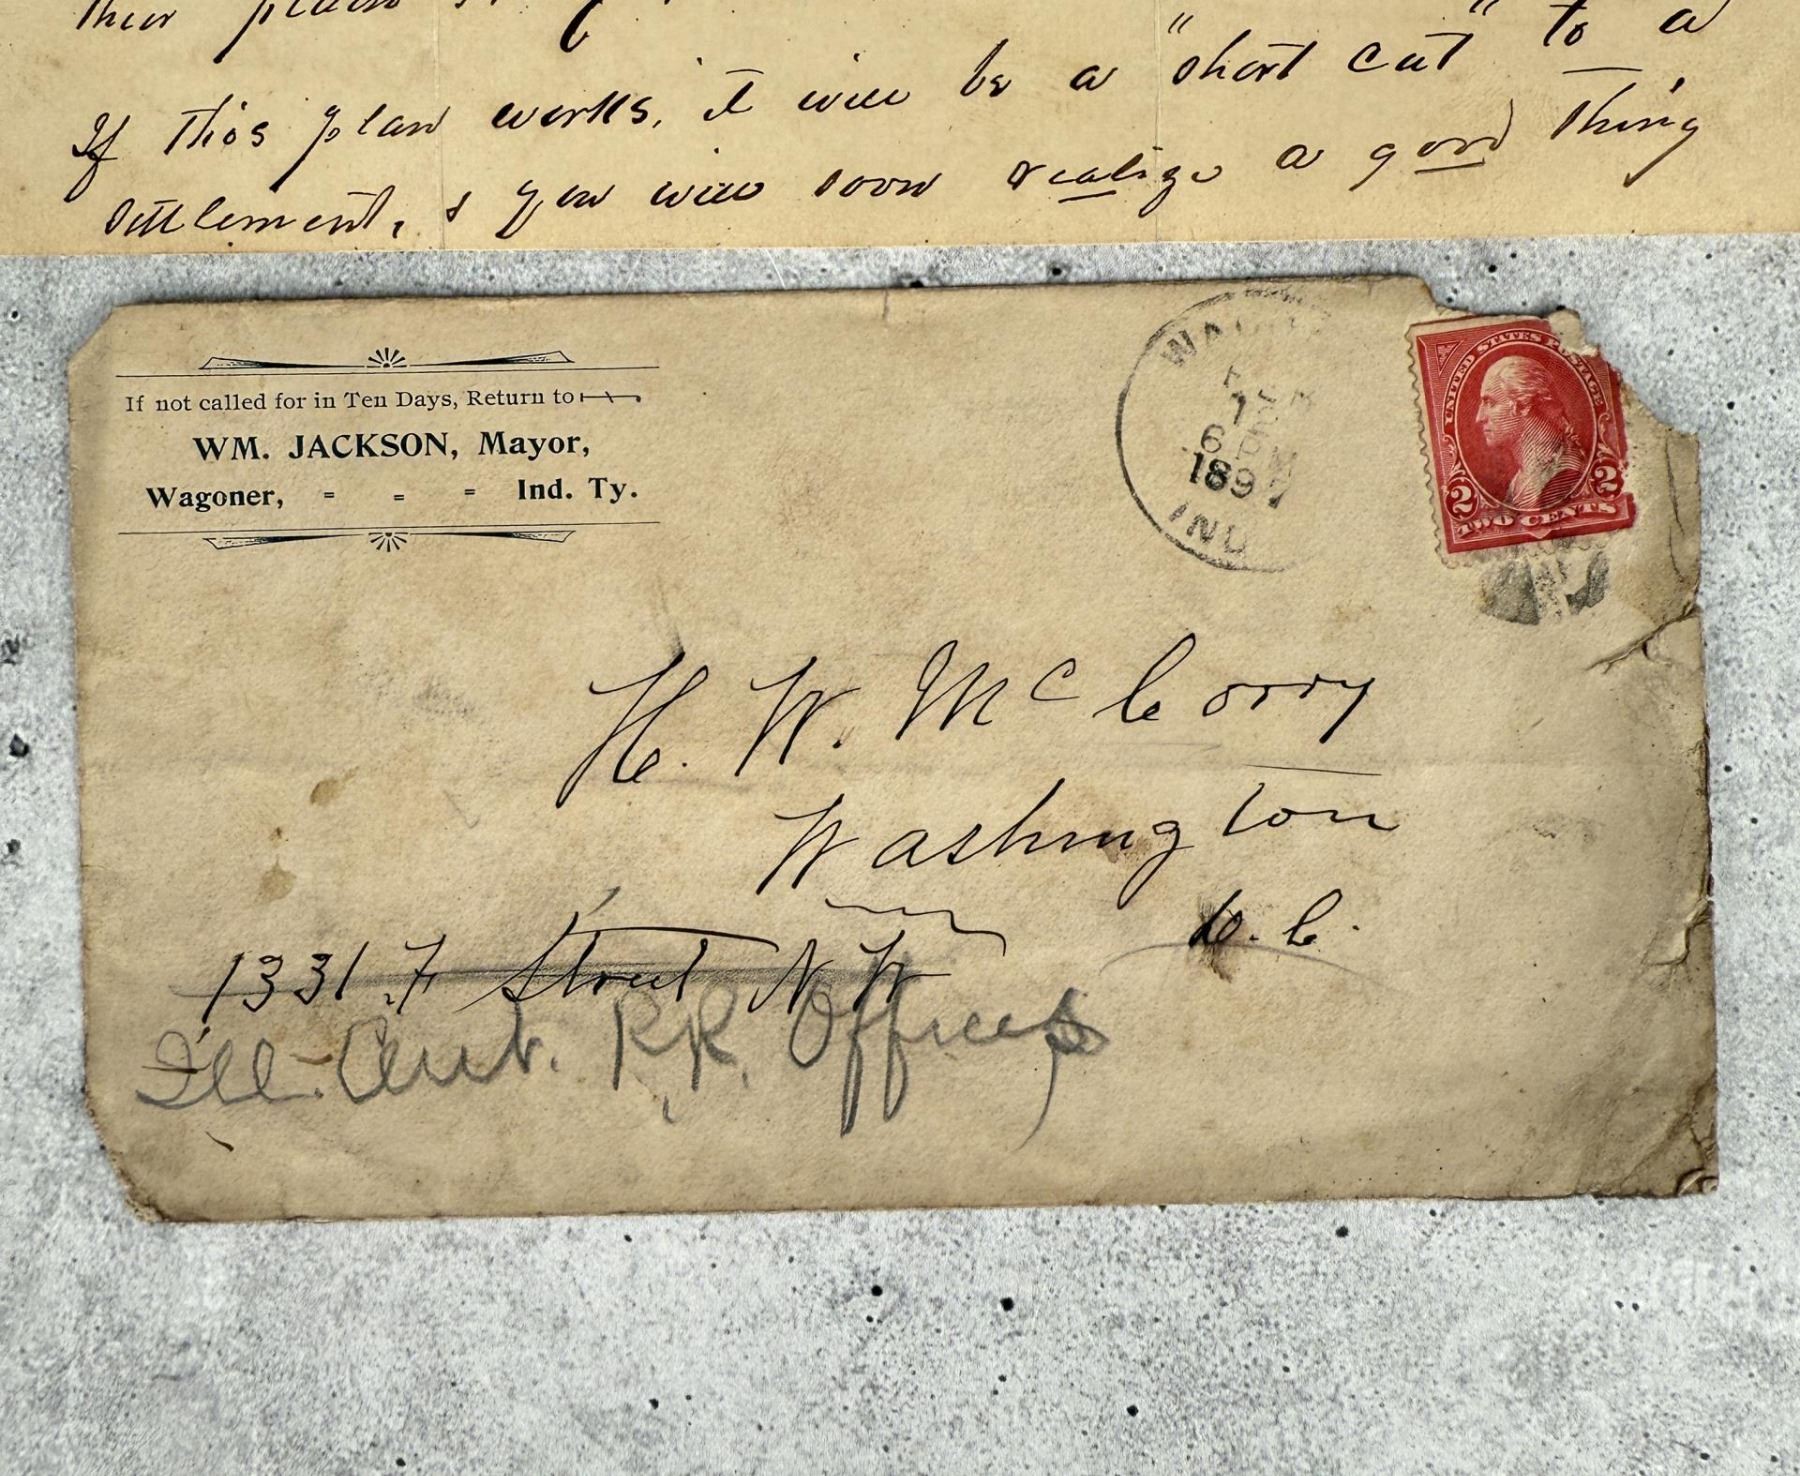 their
If this plan works, it will be a "short cut" to a
settlement, & you will soon realize a good thing
If not called for in Ten Days, Return to
WM. JACKSON, Mayor,
Wagoner, - - - Ind. Ty.
WAGONER
7
6
1897
IND
UNITED STATES POSTAGE
2 2
TWO CENTS
H. W. McCorry
Washington
D. C.
1331 F Street N W
Ill. Cent. R.R. Offices